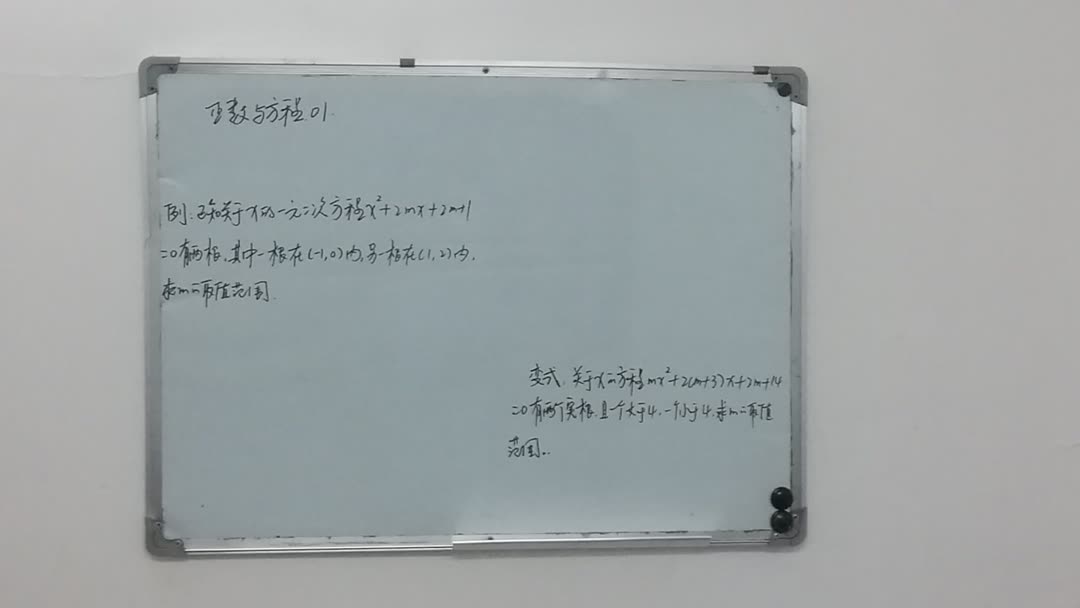 函数与方程01.
例:已知关于x的一元二次方程x²+2mx+2m+1
=0有两根,其中一根在(-1,0)内,另一根在(1,2)内,
求m的取值范围.
变式.关于x的方程mx²+2(m+3)x+2m+14
=0有两个实根,且一个大于4,一个小于4,求m的取值
范围..